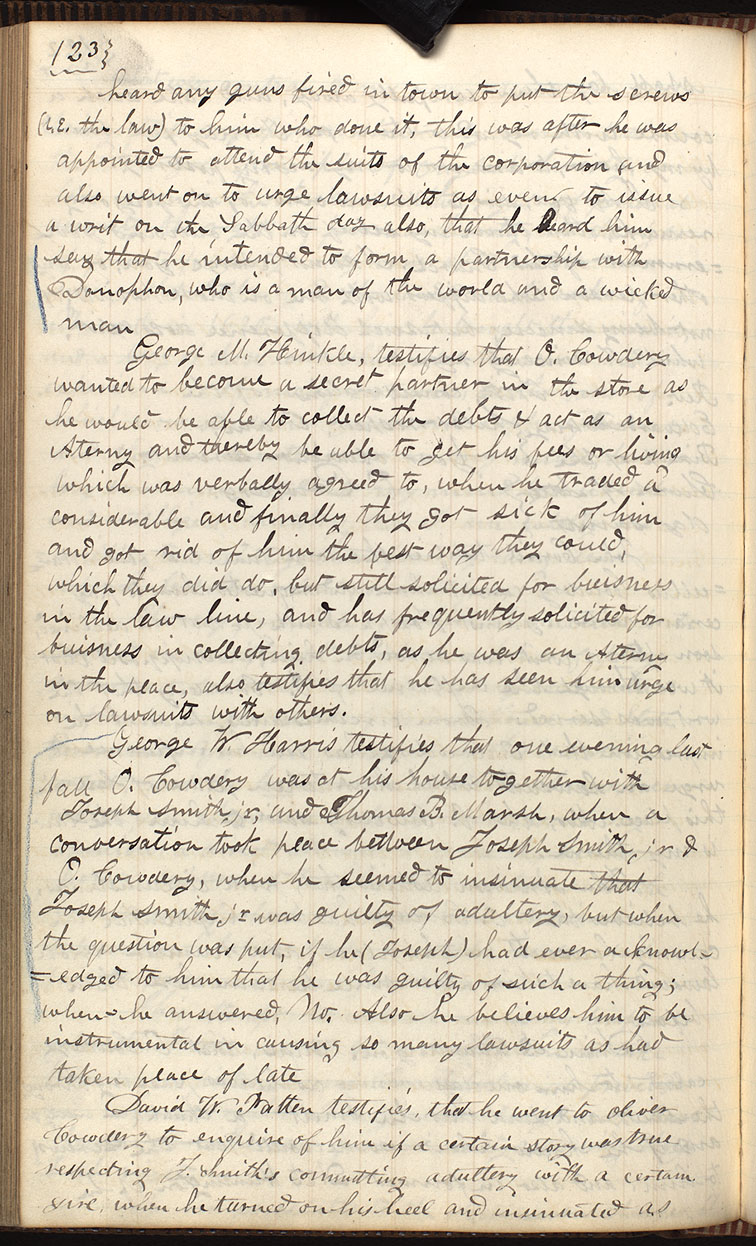 123}
heard any guns fired in town to put the screws
(I,E. the law) to him who done it, this was after he was
appointed to attend the suits of the corporation and
also went on to urge lawsuits as even to issue
a writ on the Sabbath day also, that he heard him
say that he intended to form a partnership with
Donophon, who is a man of the world and a wicked
man
George M. Hinkle, testifies that O. Cowdery
wanted to become a secret partner in the store as
he would be able to collect the debts & act as an
Aterny and thereby be able to get his fees or living
which was verbally agreed to, when he traded a
considerable and finally they got sick of him
and got rid of him the best way they could,
which they did do, but still solicited for buisness
in the law line, and has frequently solicited for
buisness in collecting debts, as he was an Aterny
in the place, also testifies that he has seen him urge
on lawsuits with others.
George W. Harris testifies that one evening last
fall O. Cowdery was at his house together with
Joseph Smith jr, and Thomas B. Marsh, when a
conversation took place between Joseph Smith jr &
O. Cowdery, when he seemed to insinuate that
Joseph Smith jr was guilty of adultery, but when
the question was put, if he (Joseph) had ever acknowl-
=edged to him that he was guilty of such a thing;
when= he answered, No. Also he believes him to be
instrumental in causing so many lawsuits as had
taken place of late
David W. Patten testifies, that he went to oliver
Cowdery to enquire of him if a certain story was true
respecting J. Smith's committing adultery with a certain
when he turned on his heel and insinuated as